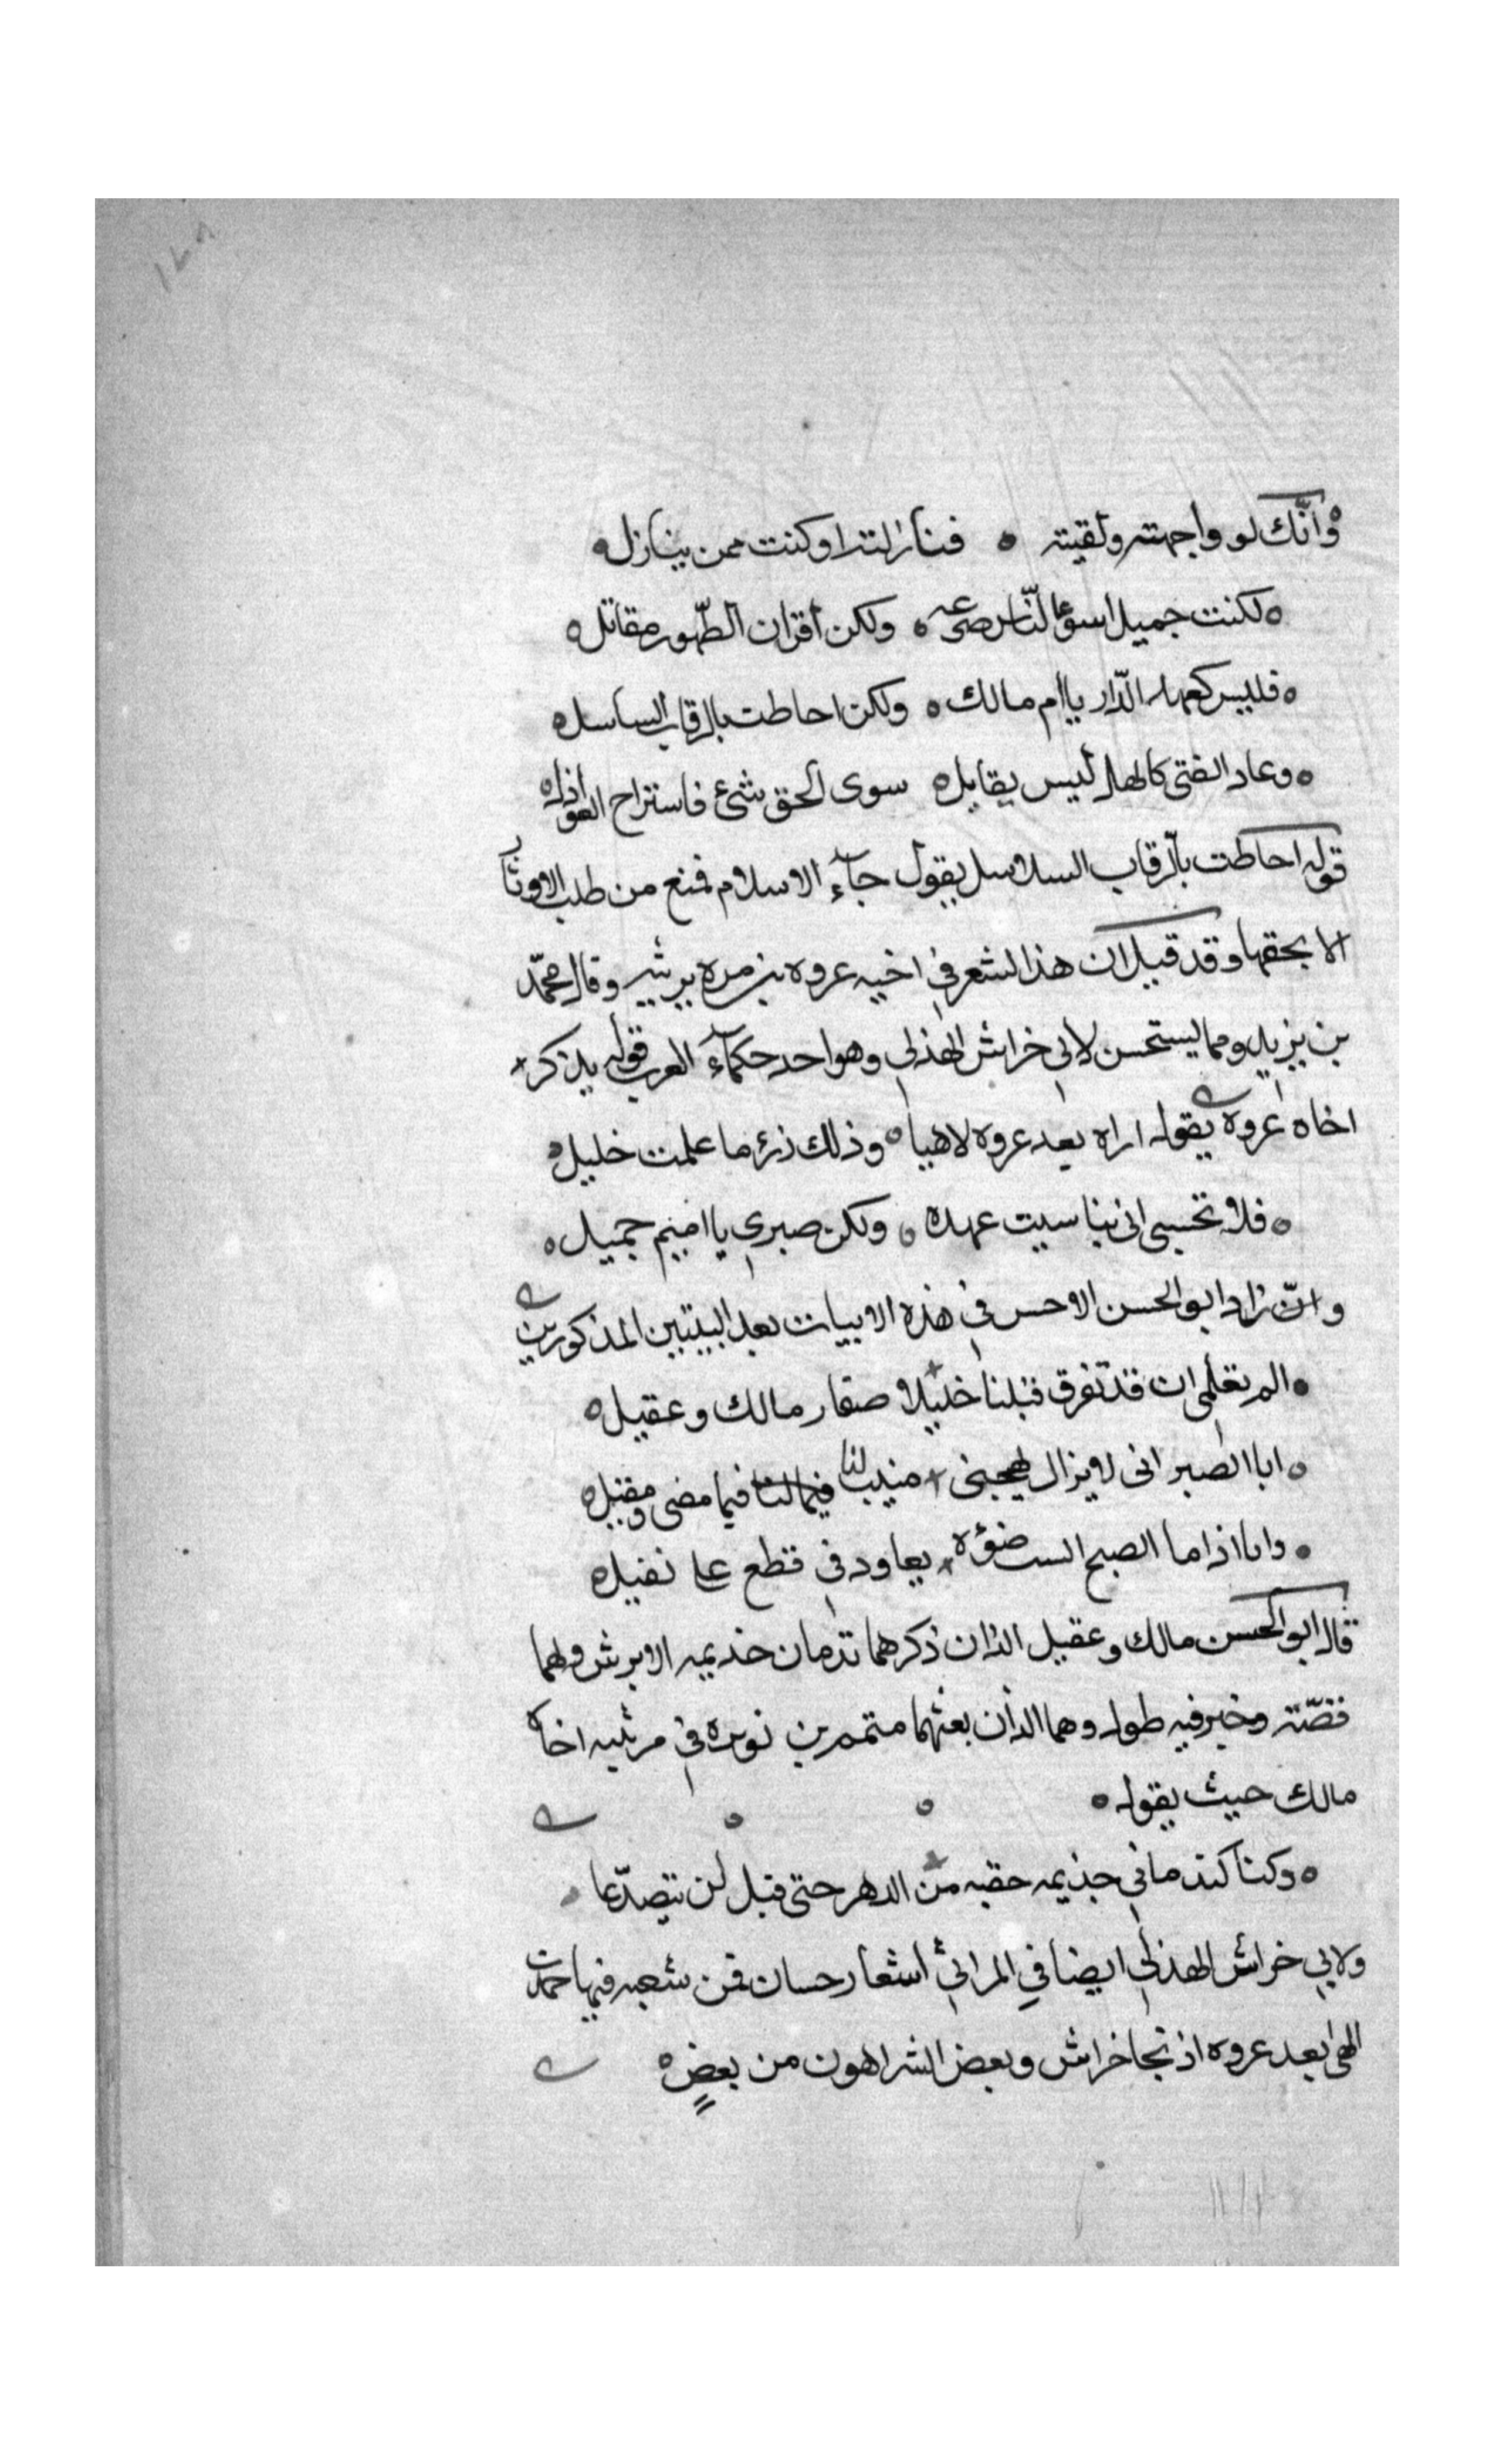 وانّك لو واجهته ولقيته ٥ فنازلته او كنت ممن ينازل٥
٥ لكنت جميل اسوء النّاس صرعه ٥ ولكن اقران الظّهور مقاتل٥
٥ فليس كعهد الدّار يا ام مالك ٥ ولكن احاطت بالرقاب السلسله
٥ وعاد الفتى كالهل ليس يقابل٥ سوى الحق شئ فاستراح العواذل٥
قوله احاطت بالرقاب السلاسل يقول جآء الاسلام فمنع من طلب الاوتار
الا بحقها وقد قيل ان هذا الشعر في اخيه عروه بن مره يرثيه وقال محمّد
بن يزيد ومما يستحسن لابي خراش الهذلي وهو احد حكمآء العرب قوله يذكر
اخاه عروة يقول اراه بعد عروه لاهيا ٥ وذلك زرء ما علمت خليل٥
٥ فلا تحسبي اني تناسيت عهده ٥ ولكن صبري يا اميم جميل ٥
وان زاد ابو الحسن الاحس في هذه الابيات بعد البيتين المذكورين
٥ الم تعلمي ان قد تفرق قبلنا خليلا صفار مالك وعقيل٥
٥ ابا الصبر اني لا يزال يهيجني منيب لنا فيما لنا فيما مضى ومقيل٥
٥ وانا اذا ما الصبح الست ضوؤه يعاودني قطع علي ثقيل٥
قال ابو الحسن مالك وعقيل الذان ذكرهما ندمان خذيمه الابرش ولهما
قصّة وخبر فيه طول وهما الذان بعثهما متمم بن نويره في مرثيه اخاه
مالك حيث يقول ٥ ٥ ٥
٥ وكنا كندماني جذيمه حقبه من الدهر حتى قيل لن نتصدّعا
ولابي خراش الهذلي ايضا في المراثي اشعار حسان فمن شعره فيها حمدت
الهي بعد عروه اذ نجا خراش وبعض الشر اهون من بعضٍ ٥